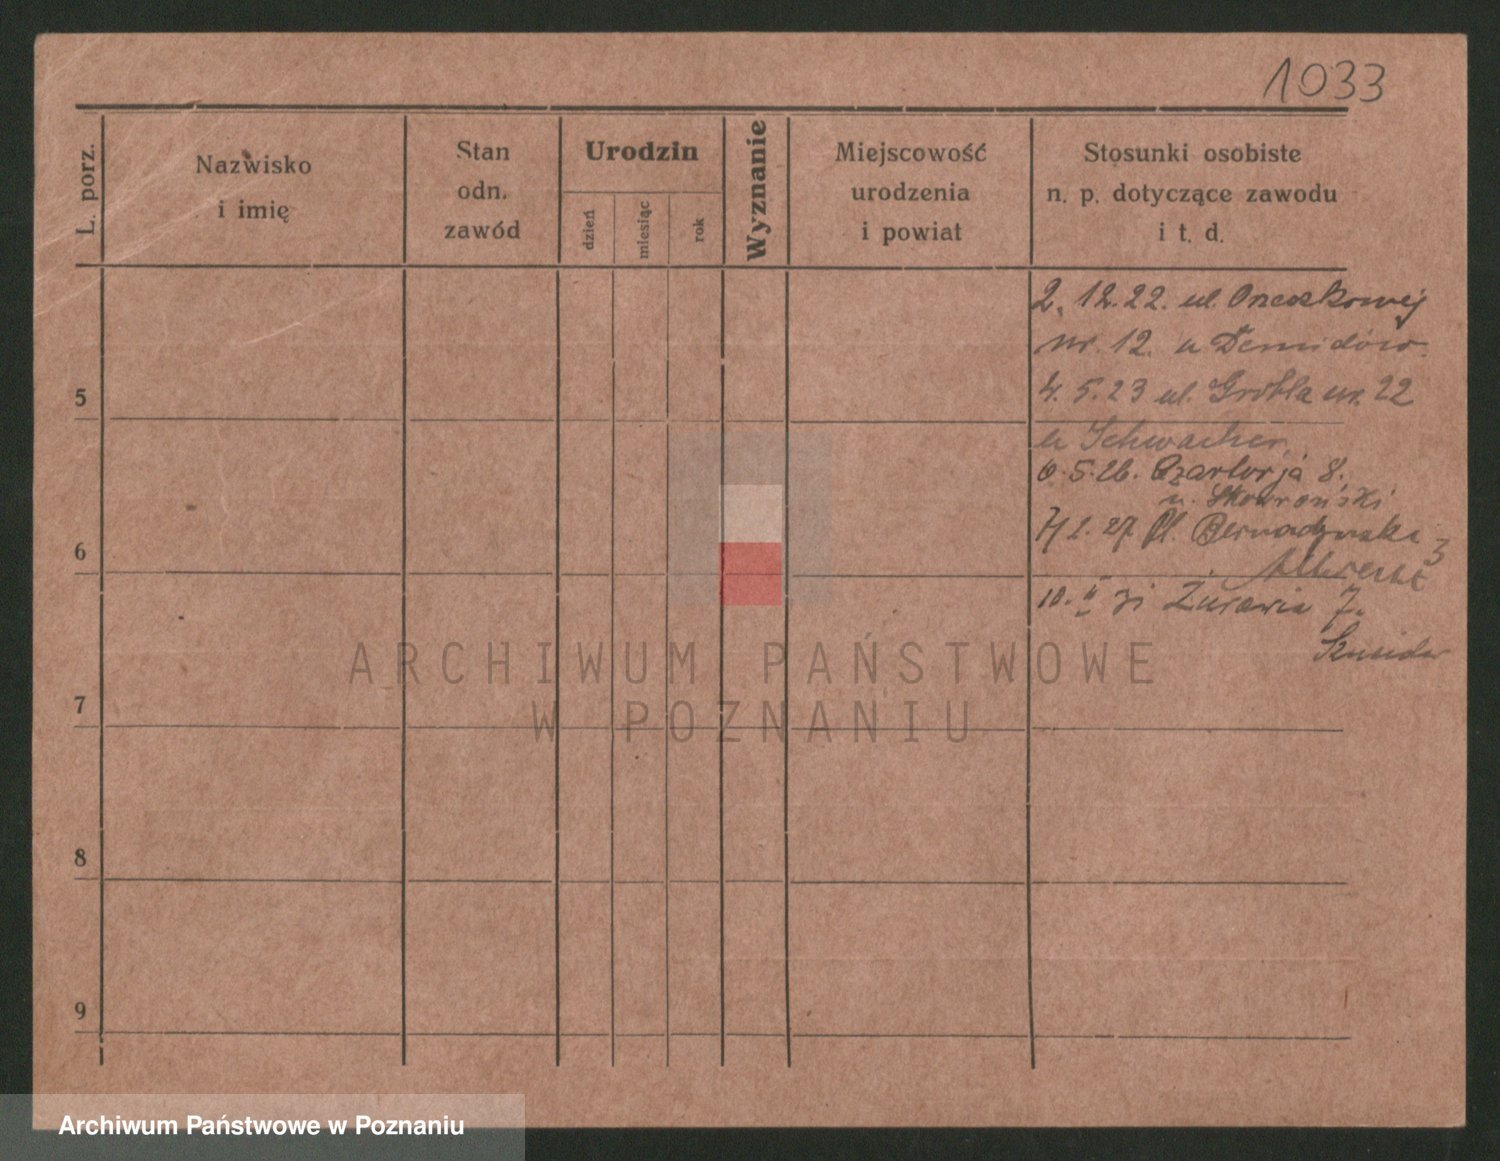 1033
L. porz.
Nazwisko
i imię
Stan
odn.
zawód
Urodzin
dzień
miesiąc
rok
Wyznanie
Miejscowość
urodzenia
i powiat
Stosunki osobiste
n. p. dotyczące zawodu
i t. d.
2. 12. 22. ul. Orzeszkowej
nr. 12. u Demidów
4. 5. 23 ul. Grobla nr. 22
5
u Schwacher
6. 5. 26. Czartorja 8.
u. Skowroński
7/1. 27. Pl. Bernadynski 3
6
10. II 31 Żurawia 7.
ARCHIWUM PAŃSTWOWE
W POZNANIU
7
8
9
Archiwum Państwowe w Poznaniu